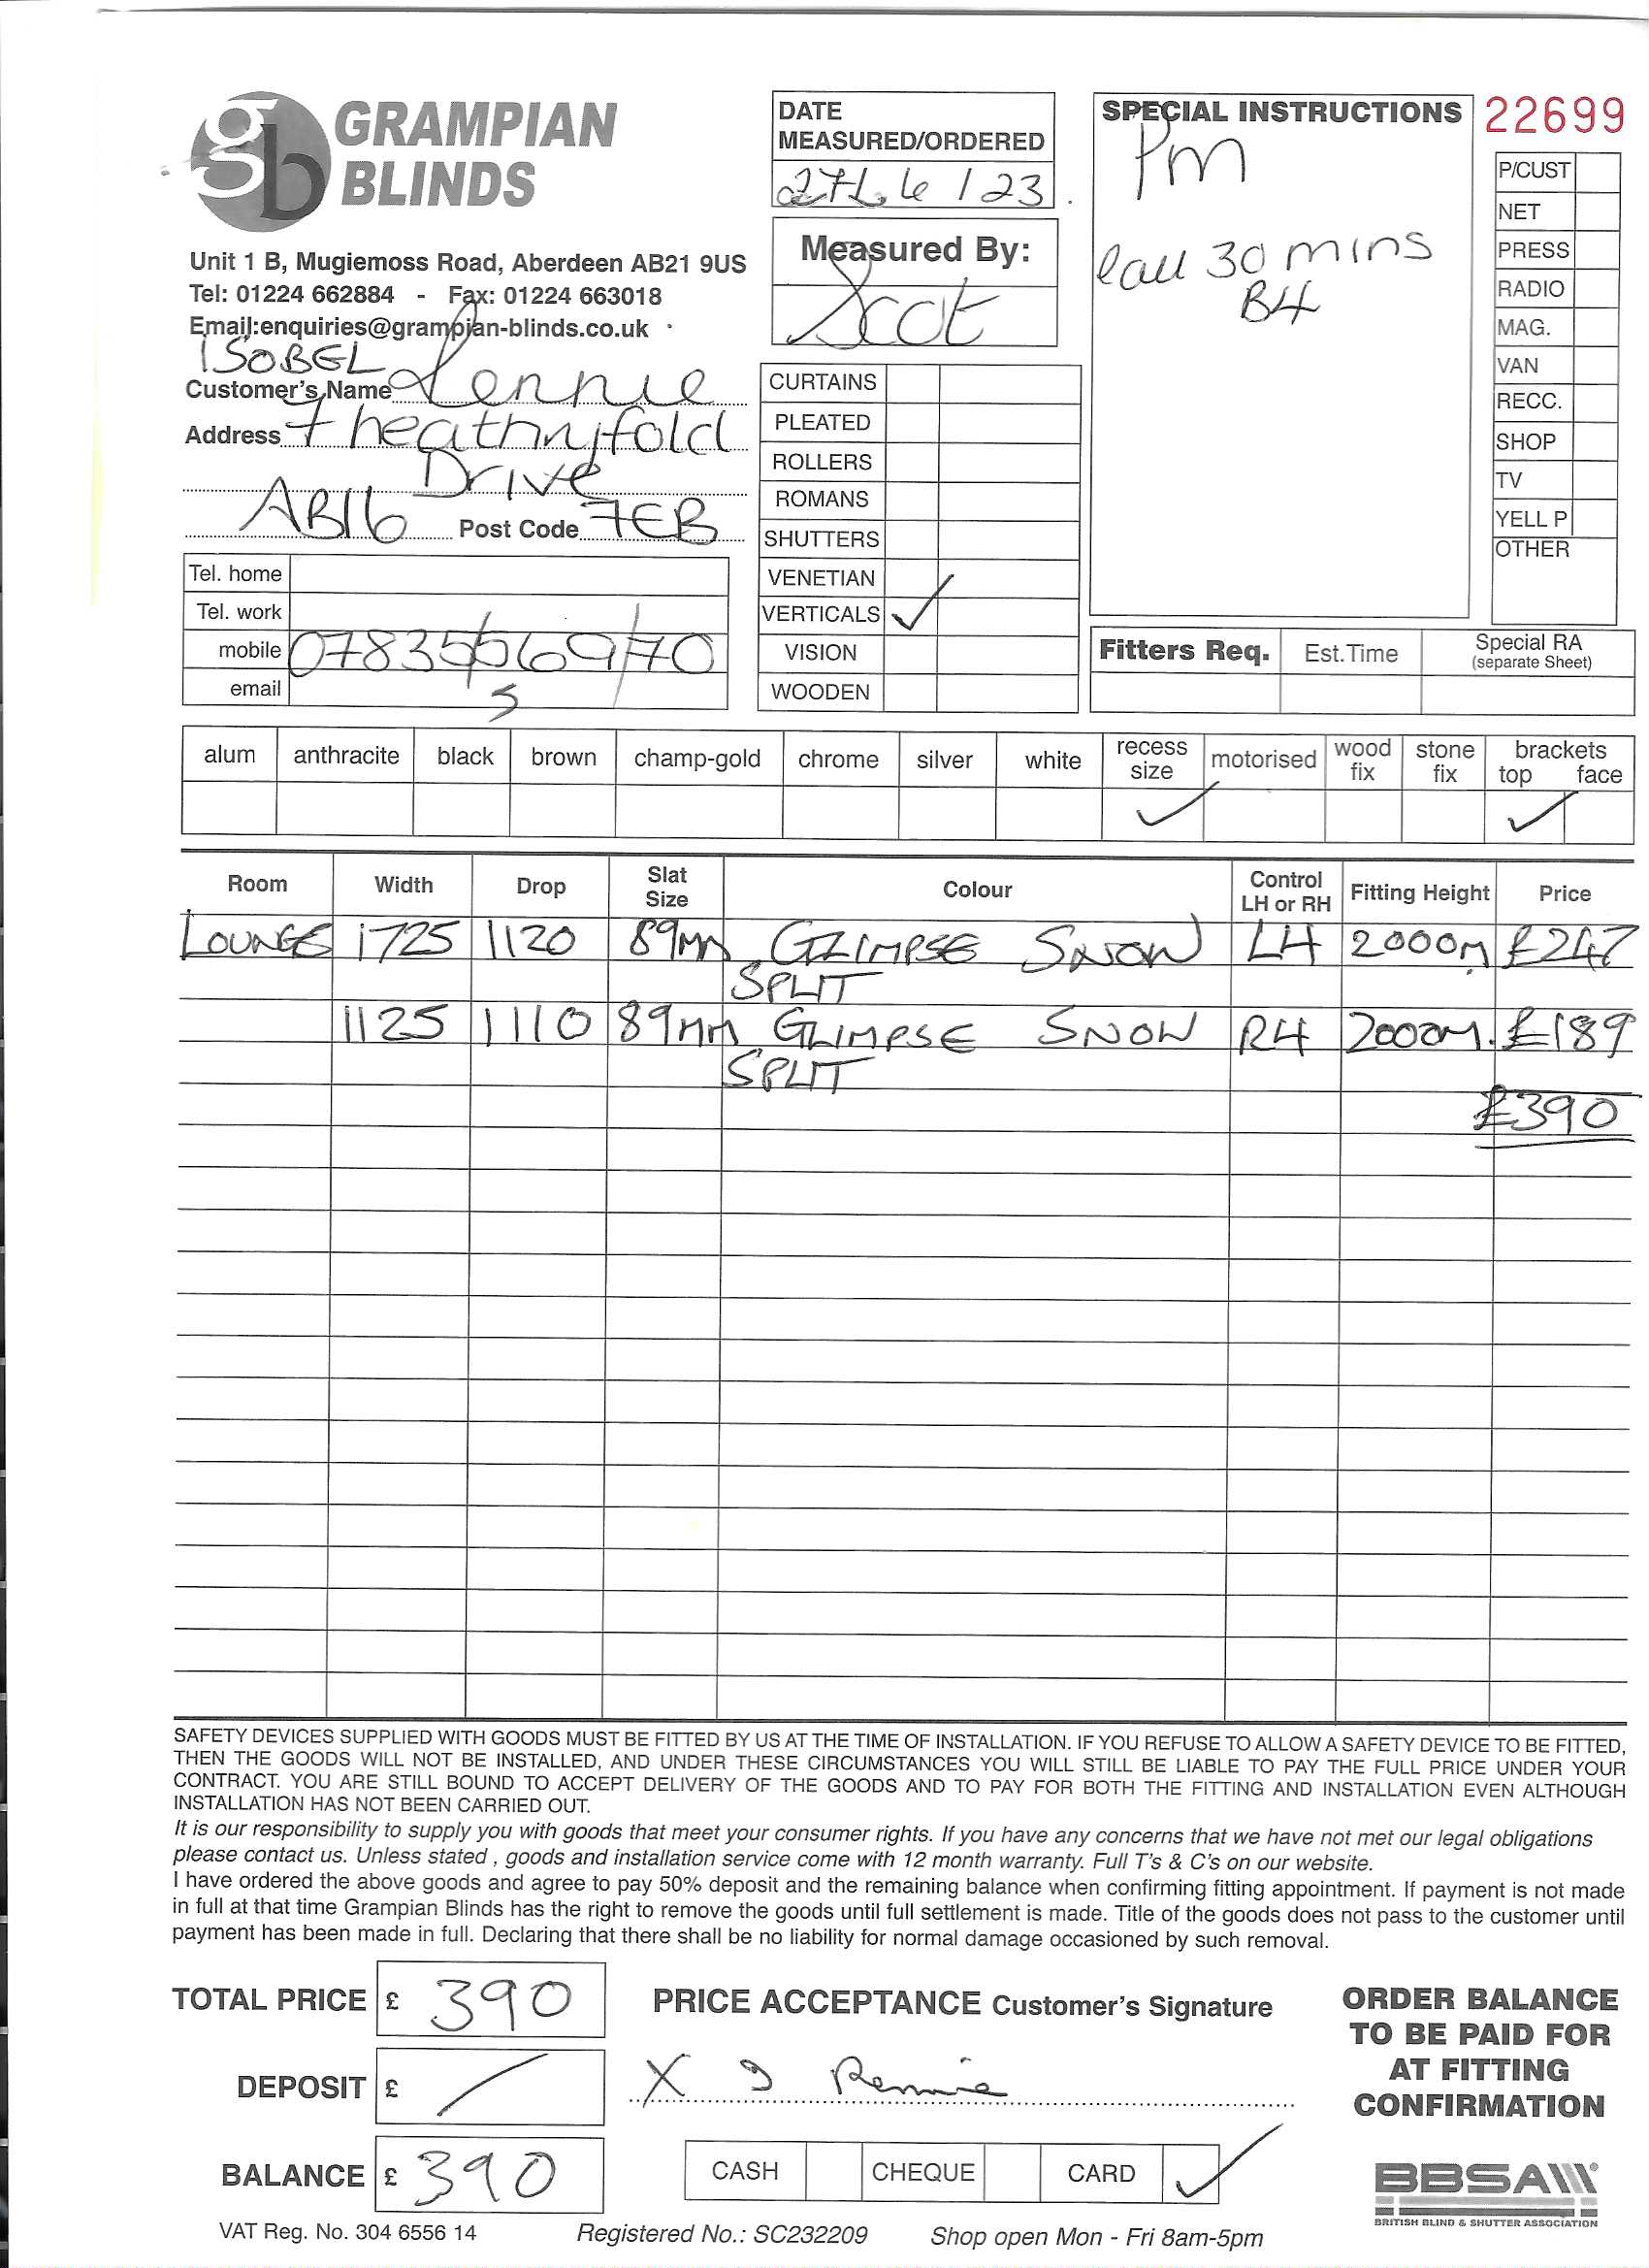 gb GRAMPIAN
BLINDS
Unit 1 B, Mugiemoss Road, Aberdeen AB21 9US
Tel: 01224 662884 - Fax: 01224 663018
Email:enquiries@grampian-blinds.co.uk
ISOBEL
Customer's Name Rennie
Address 7 heathryfold
Drive
AB16 Post Code 7EB
Tel. home
Tel. work
mobile
email
DATE
MEASURED/ORDERED
27/6/23
Measured By:
Scot
CURTAINS
PLEATED
ROLLERS
ROMANS
SHUTTERS
VENETIAN
VERTICALS ✓
VISION
WOODEN
SPECIAL INSTRUCTIONS
Pm
Call 30 mins
B4
22699
P/CUST
NET
PRESS
RADIO
MAG.
VAN
RECC.
SHOP
TV
YELL P
OTHER
Fitters Req. Est.Time Special RA
(separate Sheet)
alum anthracite black brown champ-gold chrome silver white recess size motorised wood fix stone fix brackets top face
✓ ✓
Room Width Drop Slat Size Colour Control LH or RH Fitting Height Price
LOUNGE 1725 1120 89mm GLIMPSE SNOW LH 2000m £247
SPLIT
1125 1110 89mm GLIMPSE SNOW RH 2000m. £189
SPLIT
£390
SAFETY DEVICES SUPPLIED WITH GOODS MUST BE FITTED BY US AT THE TIME OF INSTALLATION. IF YOU REFUSE TO ALLOW A SAFETY DEVICE TO BE FITTED,
THEN THE GOODS WILL NOT BE INSTALLED, AND UNDER THESE CIRCUMSTANCES YOU WILL STILL BE LIABLE TO PAY THE FULL PRICE UNDER YOUR
CONTRACT. YOU ARE STILL BOUND TO ACCEPT DELIVERY OF THE GOODS AND TO PAY FOR BOTH THE FITTING AND INSTALLATION EVEN ALTHOUGH
INSTALLATION HAS NOT BEEN CARRIED OUT.
It is our responsibility to supply you with goods that meet your consumer rights. If you have any concerns that we have not met our legal obligations
please contact us. Unless stated , goods and installation service come with 12 month warranty. Full T's & C's on our website.
I have ordered the above goods and agree to pay 50% deposit and the remaining balance when confirming fitting appointment. If payment is not made
in full at that time Grampian Blinds has the right to remove the goods until full settlement is made. Title of the goods does not pass to the customer until
payment has been made in full. Declaring that there shall be no liability for normal damage occasioned by such removal.
TOTAL PRICE £ 390
DEPOSIT £ /
BALANCE £ 390
PRICE ACCEPTANCE Customer's Signature
X I Rennie
CASH CHEQUE CARD ✓
ORDER BALANCE
TO BE PAID FOR
AT FITTING
CONFIRMATION
BBSA
BRITISH BLIND & SHUTTER ASSOCIATION
VAT Reg. No. 304 6556 14 Registered No.: SC232209 Shop open Mon - Fri 8am-5pm